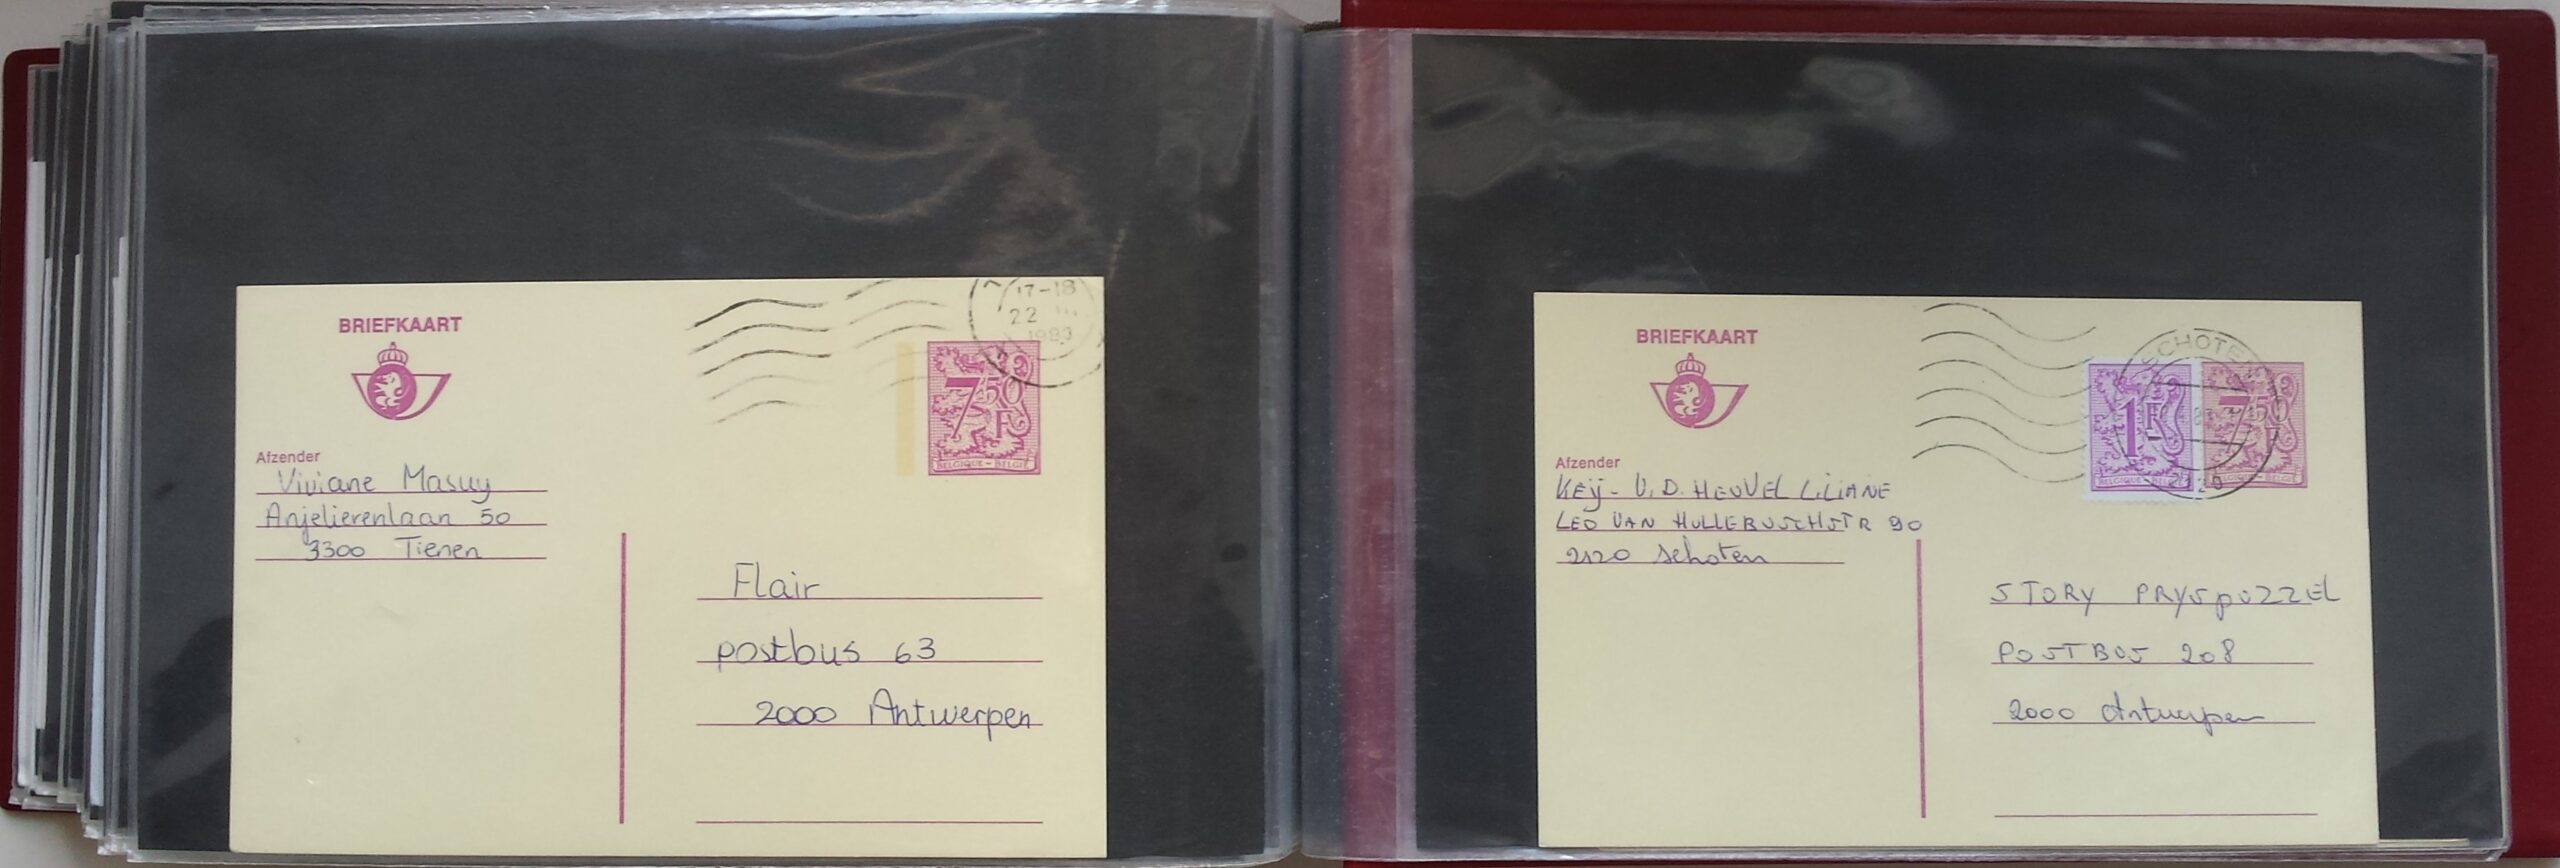 BRIEFKAART
17-18
22 III
1983
7 50 F
BELGIQUE-BELGIË
Afzender
Viviane Masuy
Anjelierenlaan 50
3300 Tienen
Flair
postbus 63
2000 Antwerpen
BRIEFKAART
SCHOTEN
2120
1F
BELGIQUE-BELGIË
7 50
BELGIË
Afzender
KEIJ - V.D. HEUVEL LILIANE
LEO VAN HULLEBUSCHSTR 90
2120 Schoten
STORY PRYSPUZZEL
POSTBUS 208
2000 Antwerpen